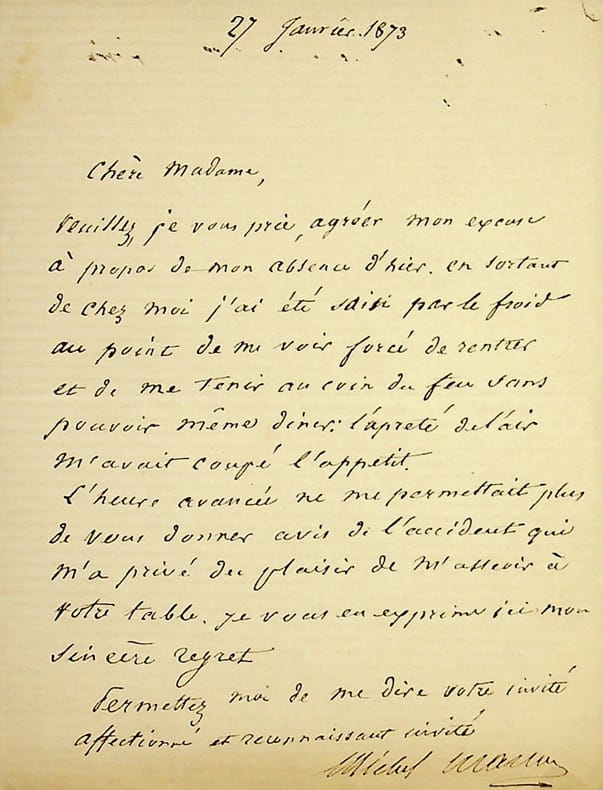 27 Janvier 1873
Chère Madame,
Veuillez, je vous prie, agréer mon excuse
à propos de mon absence d'hier. en sortant
de chez moi j'ai été saisi par le froid
au point de me voir forcé de rentrer
et de me tenir au coin du feu sans
pouvoir même diner: l'apreté de l'air
m'avait coupé l'appetit.
L'heure avancée ne me permettait plus
de vous donner avis de l'accident qui
m'a privé du plaisir de m'asseoir à
votre table. je vous en exprime ici mon
sincère regret
Permettez moi de me dire votre invité
affectionné et reconnaissant invité
Michel Masson